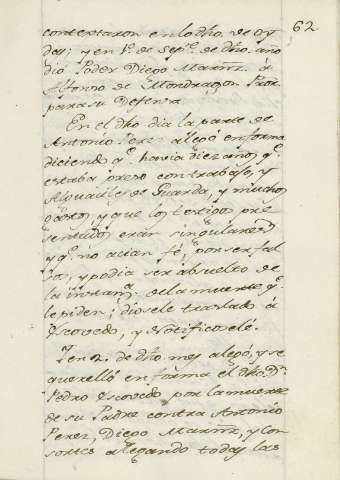 62
contestaron en lo dho. de oy
dey; y en 1º. de Sepe. de dho. ano
dió Poder Diego Marnz. á
Alfonso de Mondragon Pror.
para su Defensa
En el dho dia la parte de
Antonio Perez alegó en forma
diciendo qe. havia diez anos qe.
estaba preso con trabajo, y
Alguaciles de Guarda, y muchos
gastos, y que los testigos pre
sentados, eran singulares
y qe. no acian fé, por ser fal
sos, y podia ser absuelto de
la instana. de la muerte qe.
le piden; diosele traslado á
Escovedo, y notificosele.
Y en 2. de dho mes alegó, y se
querelló en forma el dho. Dn.
Pedro Escovedo por la muerte
de su Padre contra Antonio
Perez, Diego Marnz, y con
sortes alegando todas las